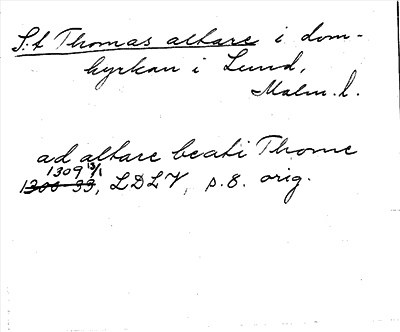 S:t Thomas altare i dom-
kyrkan i Lund,
Malm. l.
ad altare beati Thome
1309 13/1
1300-33, LDLV, p. 8. orig.